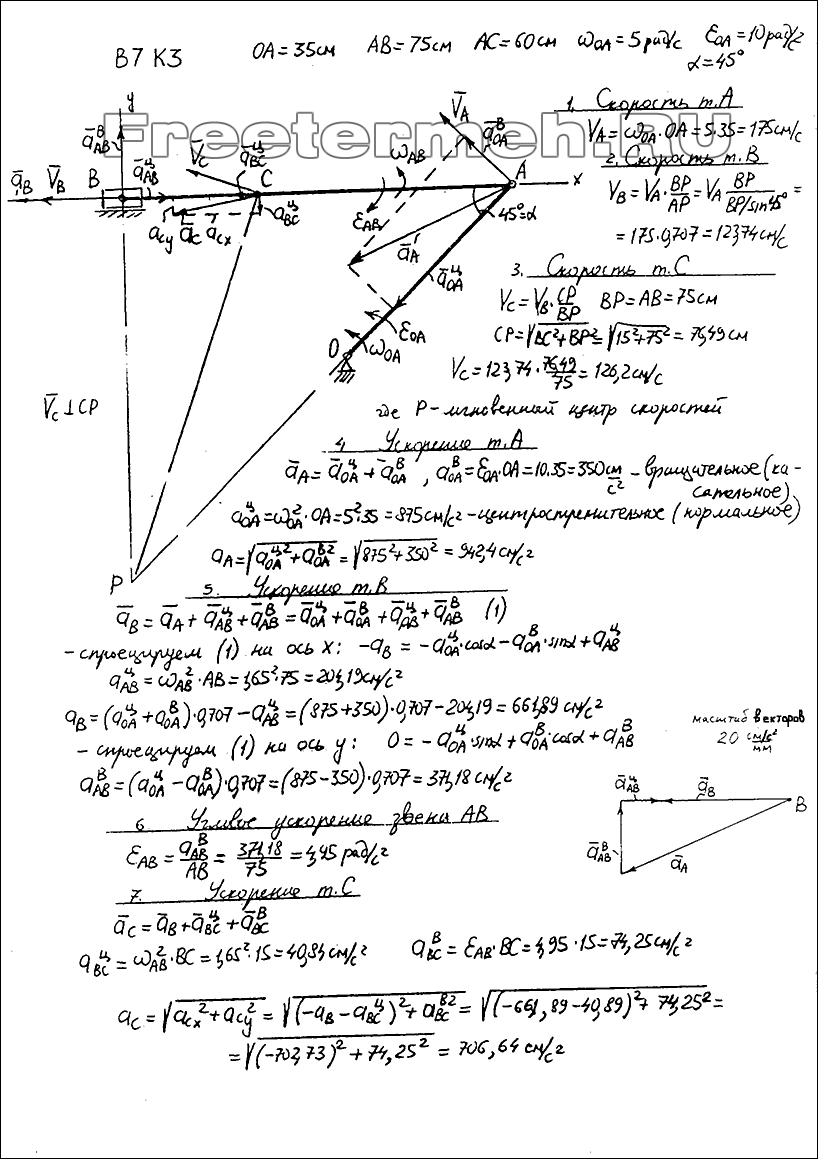 В7 К3 OA=35см AB=75см AC=60см ω_OA=5рад/с ε_OA=10рад/с²
α=45°
Freetermeh.RU
y
x
B
C
A
O
P
a̅_AB^В
a̅_B
V̅_B
a̅_AB^ц
V̅_C
a̅_BC^В
a̅_BC^ц
a_Cy a̅_C a_Cx
ω_AB
ε_AB
V̅_A
a̅_OA^В
45°=α
a̅_A
a̅_OA^ц
ε_OA
ω_OA
V̅_C⊥CP
1. Скорость т.А
V_A=ω_OA·OA=5·35=175см/с
2. Скорость т.В
V_B=V_A·BP/AP=V_A BP/(BP/sin45°)=
=175·0,707=123,74см/с
3. Скорость т.С
V_C=V_B·CP/BP BP=AB=75см
CP=√(BC²+BP²)=√(15²+75²)=76,49см
V_C=123,74·76,49/75=126,2см/с
где P-мгновенный центр скоростей
4 Ускорение т.А
a̅_A=a̅_OA^ц+a̅_OA^В, a_OA^В=ε_OA·OA=10·35=350см/с²-вращательное(ка-
сательное)
a_OA^ц=ω²_OA·OA=5²·35=875см/с²-центростремительное(нормальное)
a_A=√(a_OA^ц2+a_OA^В2)=√(875²+350²)=942,4см/с²
5. Ускорение т.В
a̅_B=a̅_A+a̅_AB^ц+a̅_AB^В=a̅_OA^ц+a̅_OA^В+a̅_AB^ц+a̅_AB^В (1)
-спроецируем (1) на ось x: -a_B=-a_OA^ц·cosα-a_OA^В·sinα+a_AB^ц
a_AB^ц=ω_AB²·AB=1,65²·75=204,19см/с²
a_B=(a_OA^ц+a_OA^В)·0,707-a_AB^ц=(875+350)·0,707-204,19=661,89см/с²
-спроецируем (1) на ось y: 0=-a_OA^ц·sinα+a_OA^В·cosα+a_AB^В
a_AB^В=(a_OA^ц-a_OA^В)·0,707=(875-350)·0,707=371,18см/с²
масштаб векторов
20 см/с²/мм
a̅_AB^ц
a̅_B
B
a̅_AB^В
a̅_A
6 Угловое ускорение звена АВ
ε_AB=a_AB^В/AB=371,18/75=4,95рад/с²
7. Ускорение т.С
a̅_C=a̅_B+a̅_BC^ц+a̅_BC^В
a_BC^ц=ω_AB²·BC=1,65²·15=40,84см/с² a_BC^В=ε_AB·BC=4,95·15=74,25см/с²
a_C=√(a_Cx²+a_Cy²)=√((-a_B-a_BC^ц)²+a_BC^В2)=√((-661,89-40,89)²+74,25²)=
=√((-702,73)²+74,25²)=706,64см/с²